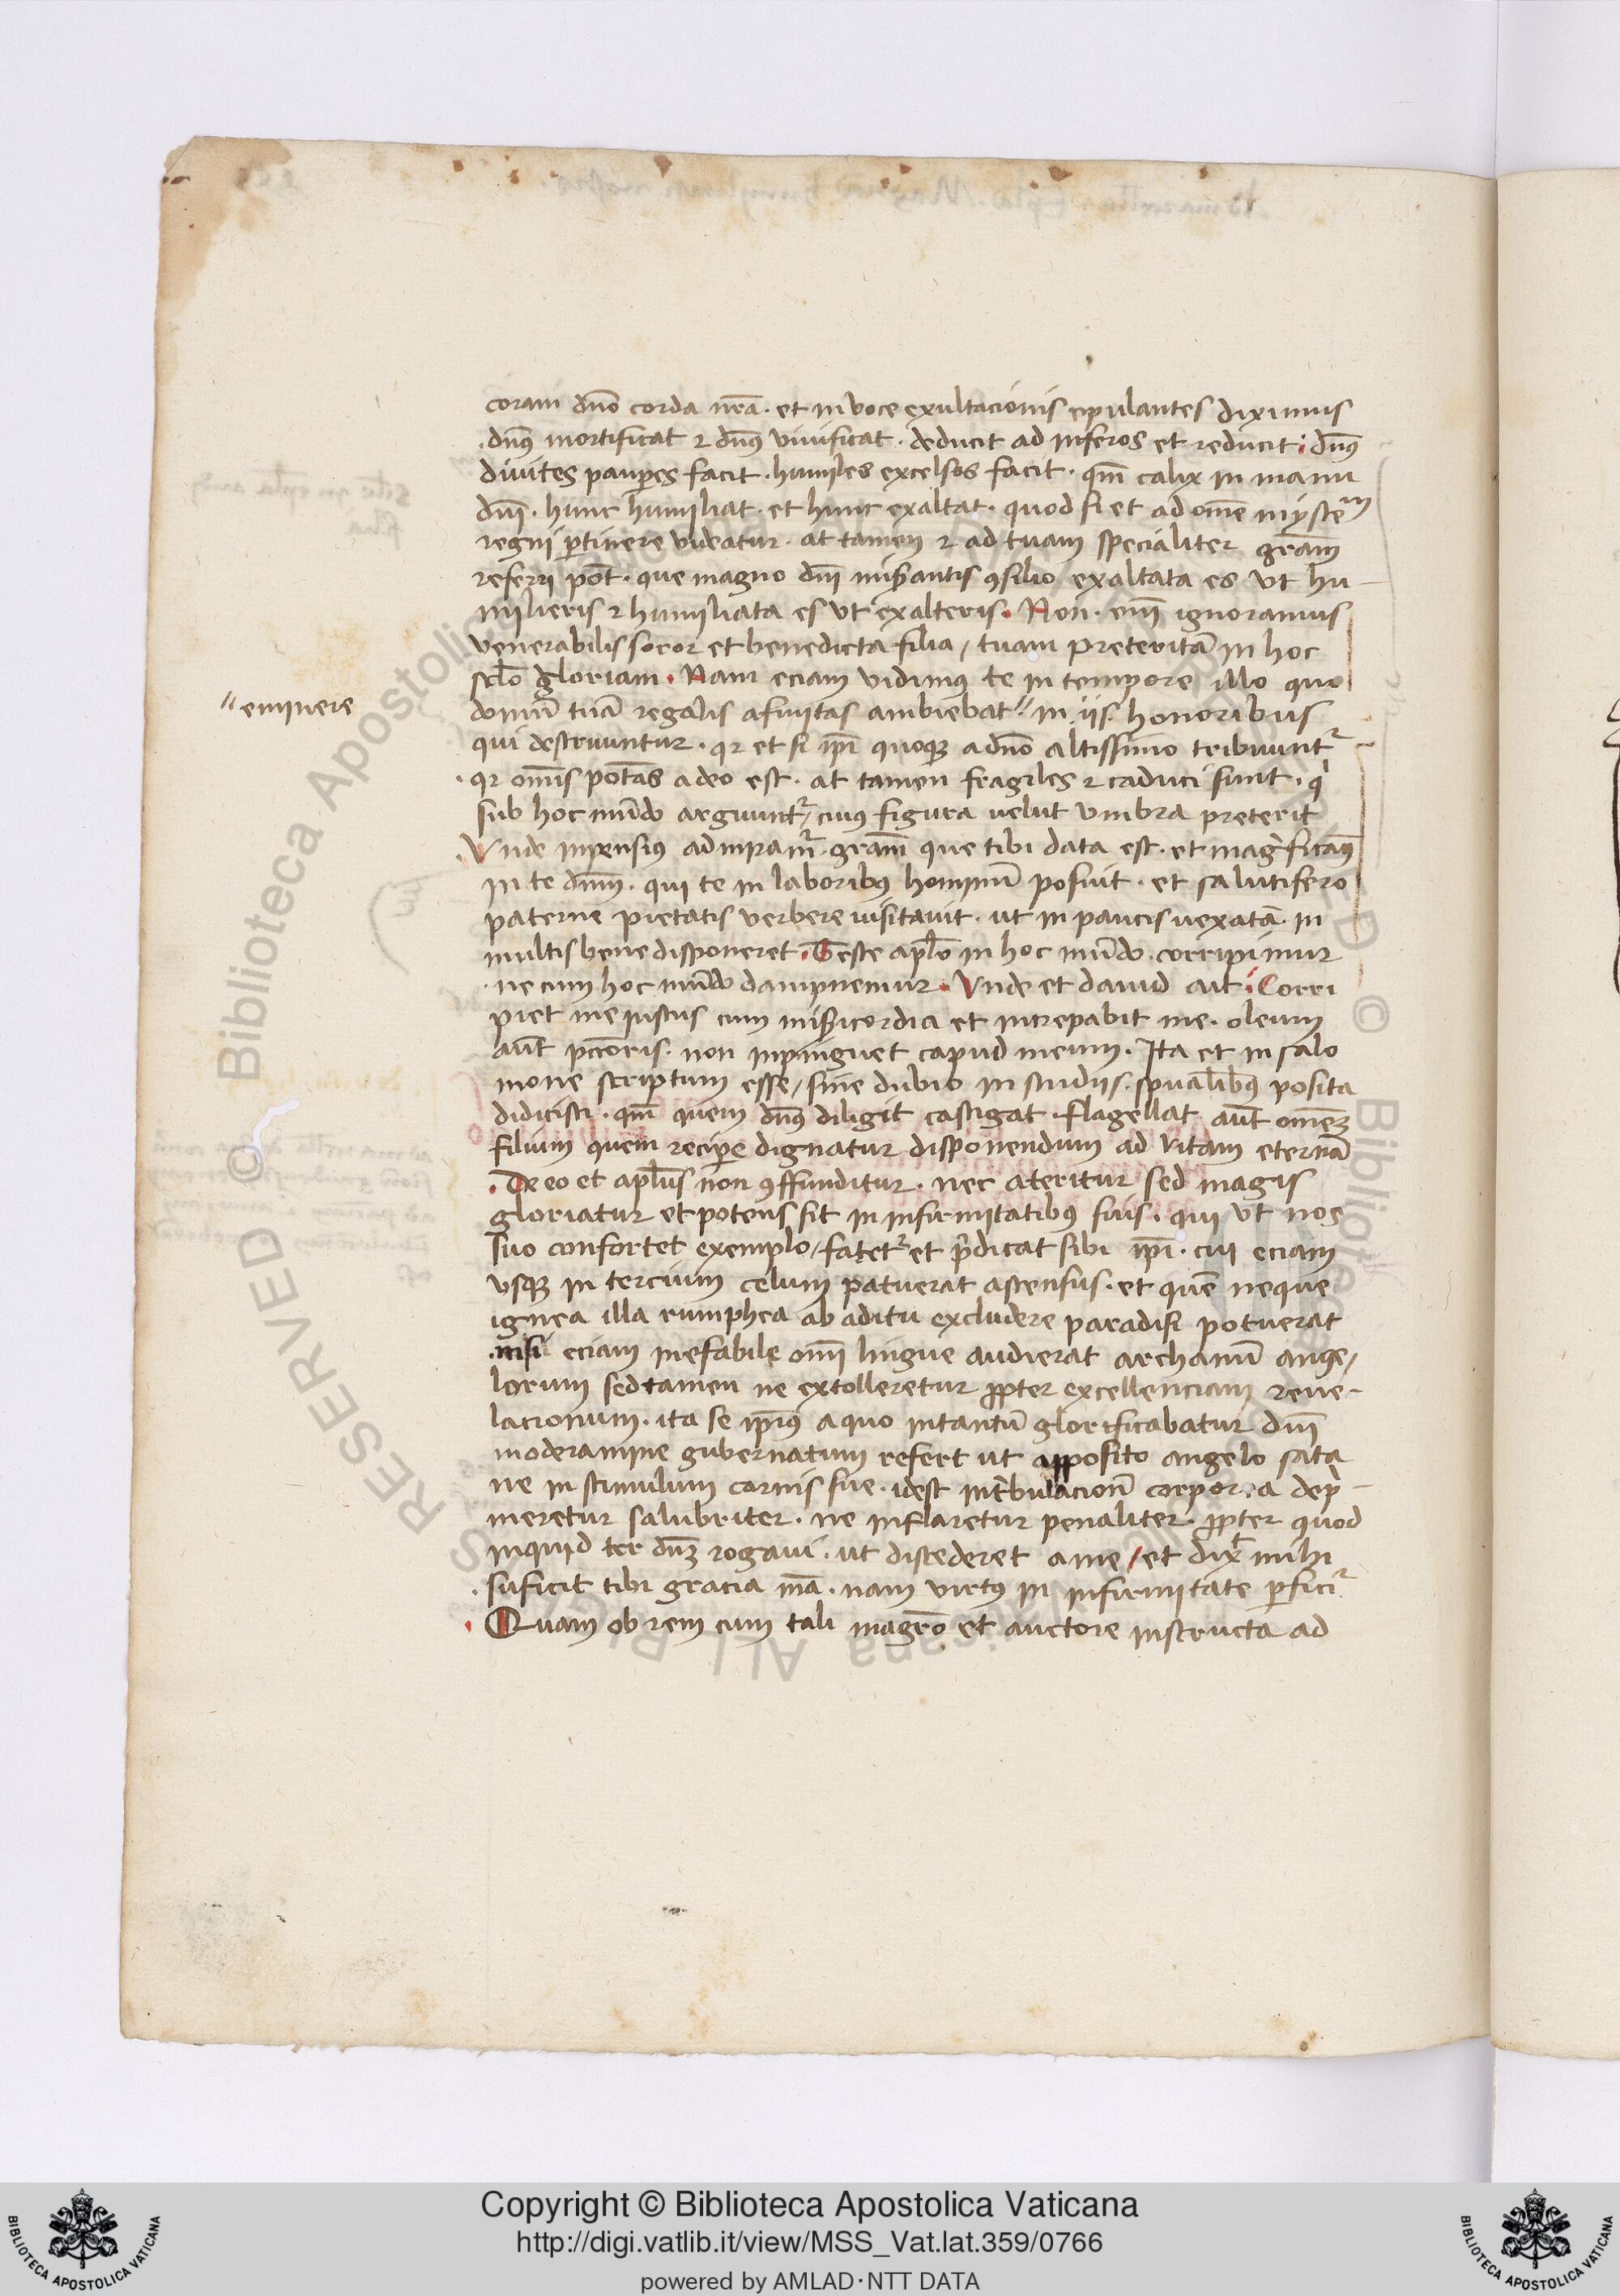 coram dño corda nrã. et in voce exultacionis epulantes diximus
.dñs mortificat ⁊ dñs viuificat. deducit ad inferos et reducit; dñs
diuites pauꝑes facit. humiles excelsos facit. qm̃ calix in manu
dñi. hunc humiliat. et hunc exaltat. quod si et ad om̃e mỹsteᵐ
regni ꝑtinere videatur. at tamen ⁊ ad tuam specialiter grãm
referri põt. que magno dñi miẜantis ꝯsilio exaltata es vt hu-
milieris ⁊ humiliata es vt exalteris. Non. eni̅ ignoramus
venerabilis soror et benedicta filia / tuam preteritã in hoc
sc̃lo gloriam. Nam eciam vidimꝰ te in tempore illo quo
"eminere
domũ tuã regalis afinitas ambiebat " in iis. honoribus
qui destruuntur. qꝛ et si ip̃i quoqꝫ a dño altissimo tribuuntᷣ
.qꝛ om̃is potas̃ a deo est. at tamen fragiles ⁊ caduci sunt. q̇
sub hoc mũdo arguuntᷣ / cuiꝰ figura velut vmbra preterit
.Vnde inpensiꝰ admiramᷣ. grãm que tibi data est. et magͥficamꝰ
in te dñm. qui te in laboribꝰ hominũ posuit. et salutifero
paterne pietatis verbere visitauit. ut in paucis uexatã. in
multis bene disponeret. Teste apl̃o in hoc mũdo. corripimur
.ne cum hoc mũdo dampnemur. Vnde et dauid ait; Corri
piet me iustus cum miẜicordia et increpabit me. oleum
aũt pc̃coris. non inpinguet capud meum. Ita et in salo
mone scriptum esse / sine dubio in studiis. spũalibꝰ posita
didicisti. qm̃ quem dñs diligit castigat. flagellat aũt om̃eꝫ
filium quem reciꝑe dignatur disponendum ad vitam eternã
.De eo et apl̃us non ꝯffunditur. nec ateritur sed magis
gloriatur et potens fit in infirmitatibꝰ suis. qui vt nos
suo confortet exemplo / fatetᷣ et p̃dicat sibi ip̃i. cui eciam
vsqꝫ in tercium celum patuerat ascensus. et quẽ neque
ignea illa rumphea ab aditu excludere paradisi potuerat
.nisi eciam inefabile om̃i lingue audierat archanũ ange/
lorum sed tamen ne extolleretur ꝓpter excellenciam reue-
lacionum. ita se ip̃ius a quo intantũ glorificabatur dñi
moderamine gubernatum refert ut apposito angelo sata
ne in stimulum carnis sue. idest intͥbulacionũ corporea depͥ-
meretur salubriter. ne inflaretur penaliter. ꝓpter quod
inquid ter dñꝫ rogaui. ut discederet a me / et dix̃ mihi
.suficit tibi gracia mã. nam virtꝰ in infirmitate ꝑficiᷣ
.Quam ob rem cum tali magr̃o et auctore instructa ad
Copyright © Biblioteca Apostolica Vaticana
http://digi.vatlib.it/view/MSS_Vat.lat.359/0766
powered by AMLAD·NTT DATA